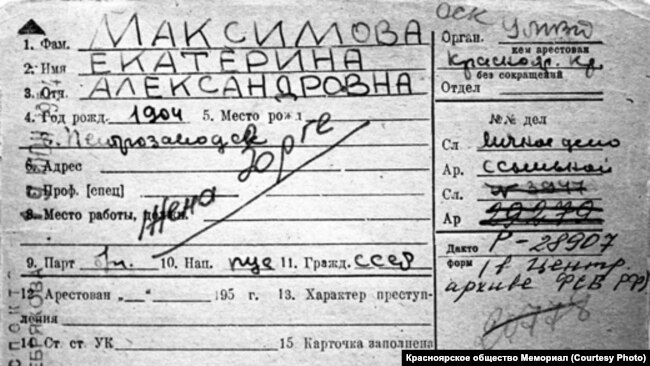 1. Фам. МАКСИМОВА
2. Имя ЕКАТЕРИНА
3. Отч. АЛЕКСАНДРОВНА
4. Год рожд. 1904 5. Место рожд.
г. Петрозаводск
6. Адрес
7. Проф. [спец]
8. Место работы,
Жена Зорге
9. Парт б/п. 10. Нац. рус 11. Гражд. СССР
12. Арестован „ “ 195 г. 13. Характер преступ-
ления
14. Ст ст УК 15 Карточка заполнена
ОСК
Орган. УМВД
кем арестован
Краснояр. Кр.
без сокращений
Отдел
№№ дел
Сл личное дело
Ар. ссыльной
Сл. № 3947
Ар 29279
Дакто Р-28907
форм (в Центр.
архиве ФСБ РФ)
20778
Красноярское общество Мемориал (Courtesy Photo)